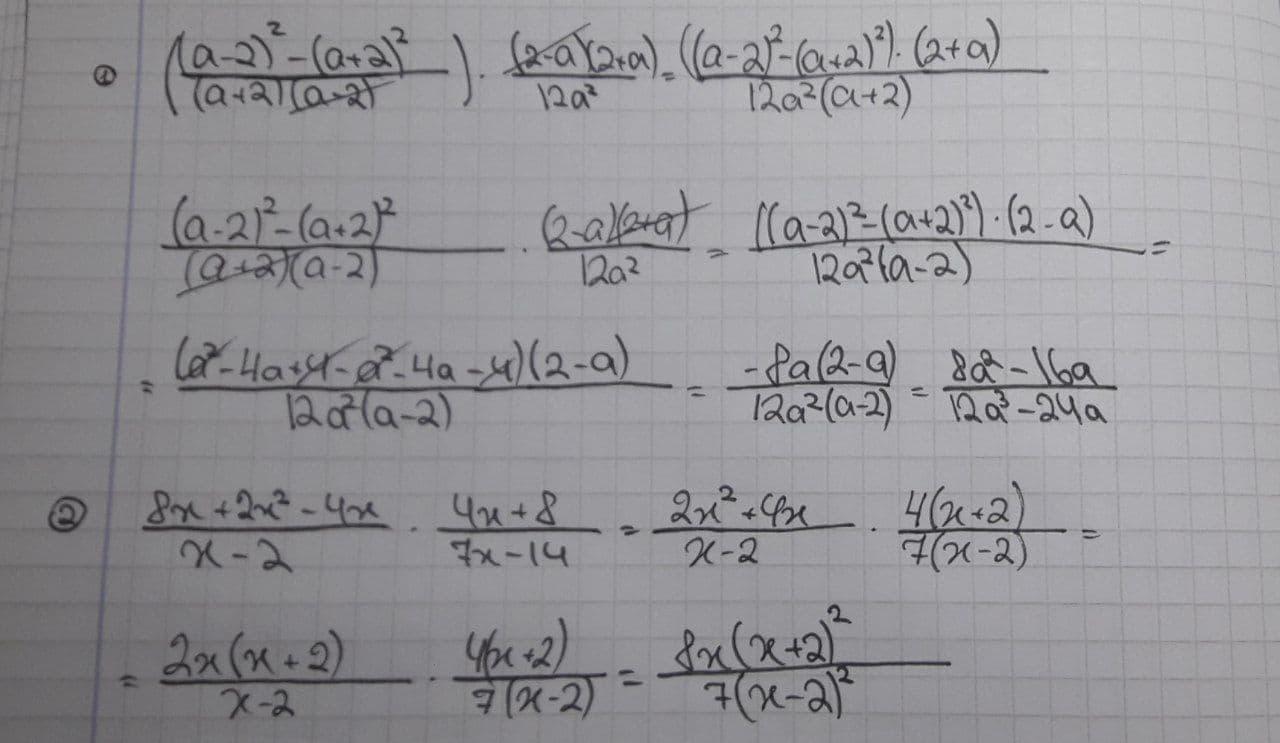 ① ((a-2)²-(a+2)²/(a+2)(a-2)) · (2-a)(2+a)/12a² = ((a-2)²-(a+2)²)·(2+a)/12a²(a+2)
(a-2)²-(a+2)²/(a+2)(a-2) · (2-a)(2+a)/12a² = ((a-2)²-(a+2)²)·(2-a)/12a²(a-2) =
= (a²-4a+4-a²-4a-4)(2-a)/12a²(a-2) = -8a(2-a)/12a²(a-2) = 8a²-16a/12a³-24a
② 8x+2x²-4x/x-2 · 4x+8/7x-14 = 2x²+4x/x-2 · 4(x+2)/7(x-2) =
= 2x(x+2)/x-2 · 4(x+2)/7(x-2) = 8x(x+2)²/7(x-2)²